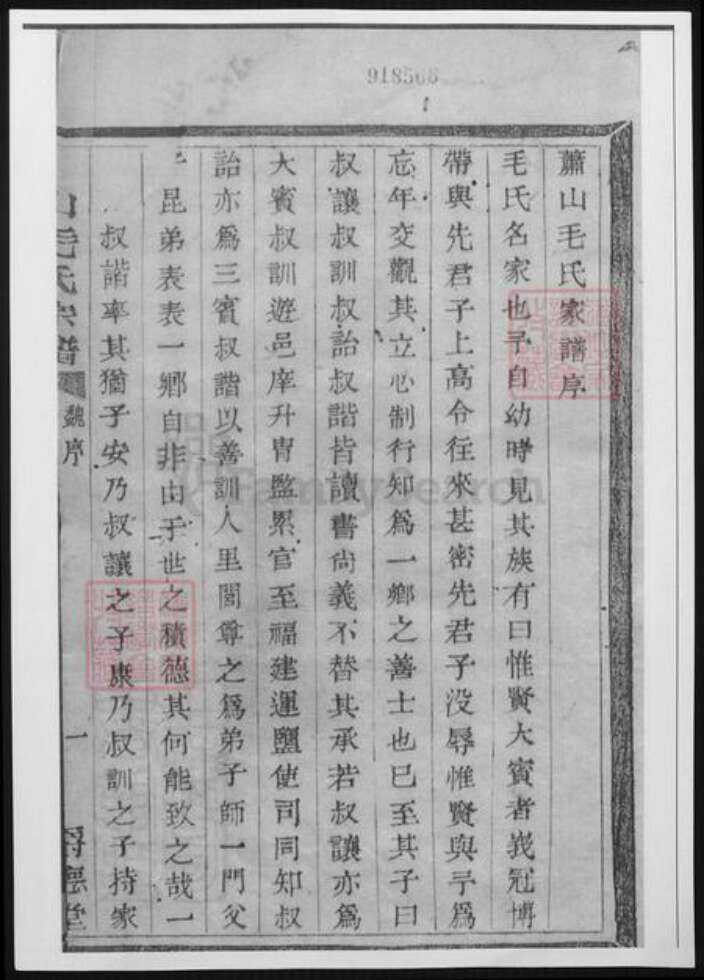 918566
蕭山毛氏家譜序
毛氏名家也予自幼時見其族有曰惟賢大賓者峩冠博
帶與先君子上高令往來甚密先君子没辱惟賢與予爲
忘年交觀其立心制行知爲一鄉之善士也已至其子曰
叔讓叔訓叔詒叔諧皆讀書尙義不替其承若叔讓亦爲
大賓叔訓遊邑庠升胄監累官至福建運鹽使司同知叔
詒亦爲三賓叔諧以善訓人里閭尊之爲弟子師一門父
昆弟表表一鄉自非由于世之積德其何能致之哉一
叔諧率其猶子安乃叔讓之子康乃叔訓之子持家
山毛氏宗譜
魏序
一
爵德堂
FamilySearch